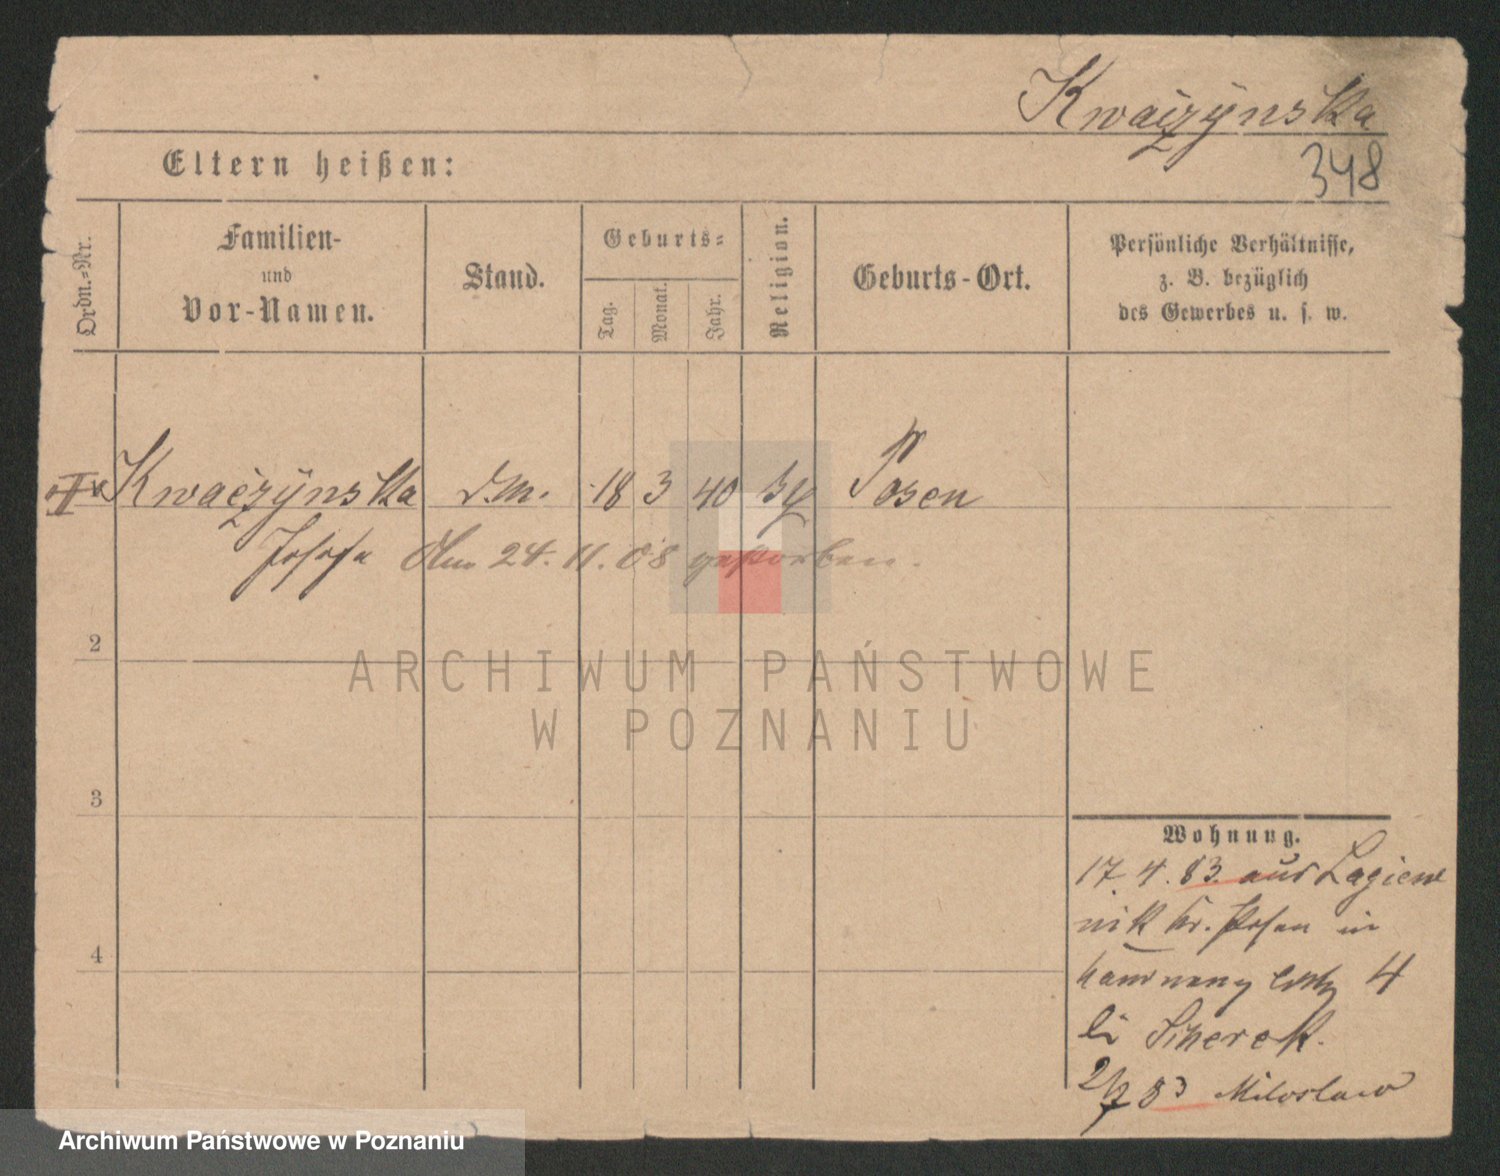 Kwaczÿnska
Eltern heißen:
348
Ordn.-Nr.
Familien-
und
Vor-Namen.
Stand.
Geburts-
Tag.
Monat.
Jahr.
Religion.
Geburts-Ort.
Persönliche Verhältnisse,
z. B. bezüglich
des Gewerbes u. s. w.
Kwaczÿnska d.M. 18 3 40 Posen
Josefa Am 24. 11. 08 gestorben.
2
ARCHIWUM PAŃSTWOWE
W POZNANIU
3
Wohnung.
17.4.83. aus Lagiew
nik Kr. Posen in
4
4
2/7 83 Miloslaw
Archiwum Państwowe w Poznaniu